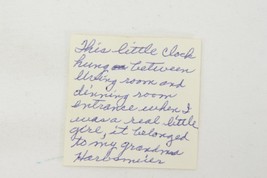 This little clock
hung between
living room and
dinning room
entrance when I
was a real little
girl, it belonged
to my grandma